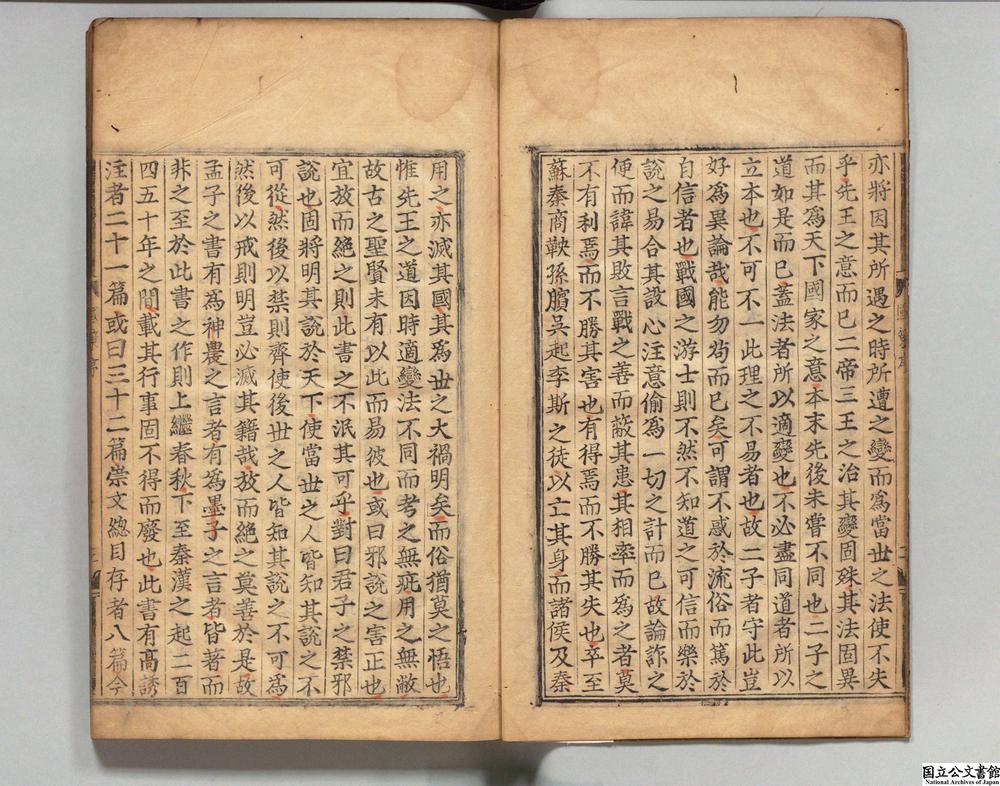 亦將因其所遇之時所遭之變而爲當世之法使不失
乎先王之意而已二帝三王之治其變固殊其法固異
而其爲天下國家之意本末先後未嘗不同也二子之
道如是而已蓋法者所以適變也不必盡同道者所以
立本也不可不一此理之不易者也故二子者守此豈
好爲異論哉能勿苟而已矣可謂不惑於流俗而篤於
自信者也戰國之游士則不然不知道之可信而樂於
說之易合其設心注意偷爲一切之計而已故論詐之
便而諱其敗言戰之善而蔽其患其相率而爲之者莫
不有利焉而不勝其害也有得焉而不勝其失也卒至
蘇秦商鞅孫臏吳起李斯之徒以亡其身而諸侯及秦
用之亦滅其國其爲世之大禍明矣而俗猶莫之悟也
惟先王之道因時適變法不同而考之無疵用之無敝
故古之聖賢未有以此而易彼也或曰邪說之害正也
宜放而絕之則此書之不泯其可乎對曰君子之禁邪
說也固將明其說於天下使當世之人皆知其說之不
可從然後以禁則齊使後世之人皆知其說之不可爲
然後以戒則明豈必滅其籍哉放而絕之莫善於是故
孟子之書有爲神農之言者有爲墨子之言者皆著而
非之至於此書之作則上繼春秋下至秦漢之起二百
四五十年之間載其行事固不得而廢也此書有高誘
注者二十一篇或曰三十二篇崇文總目存者八篇今
国立公文書館
National Archives of Japan